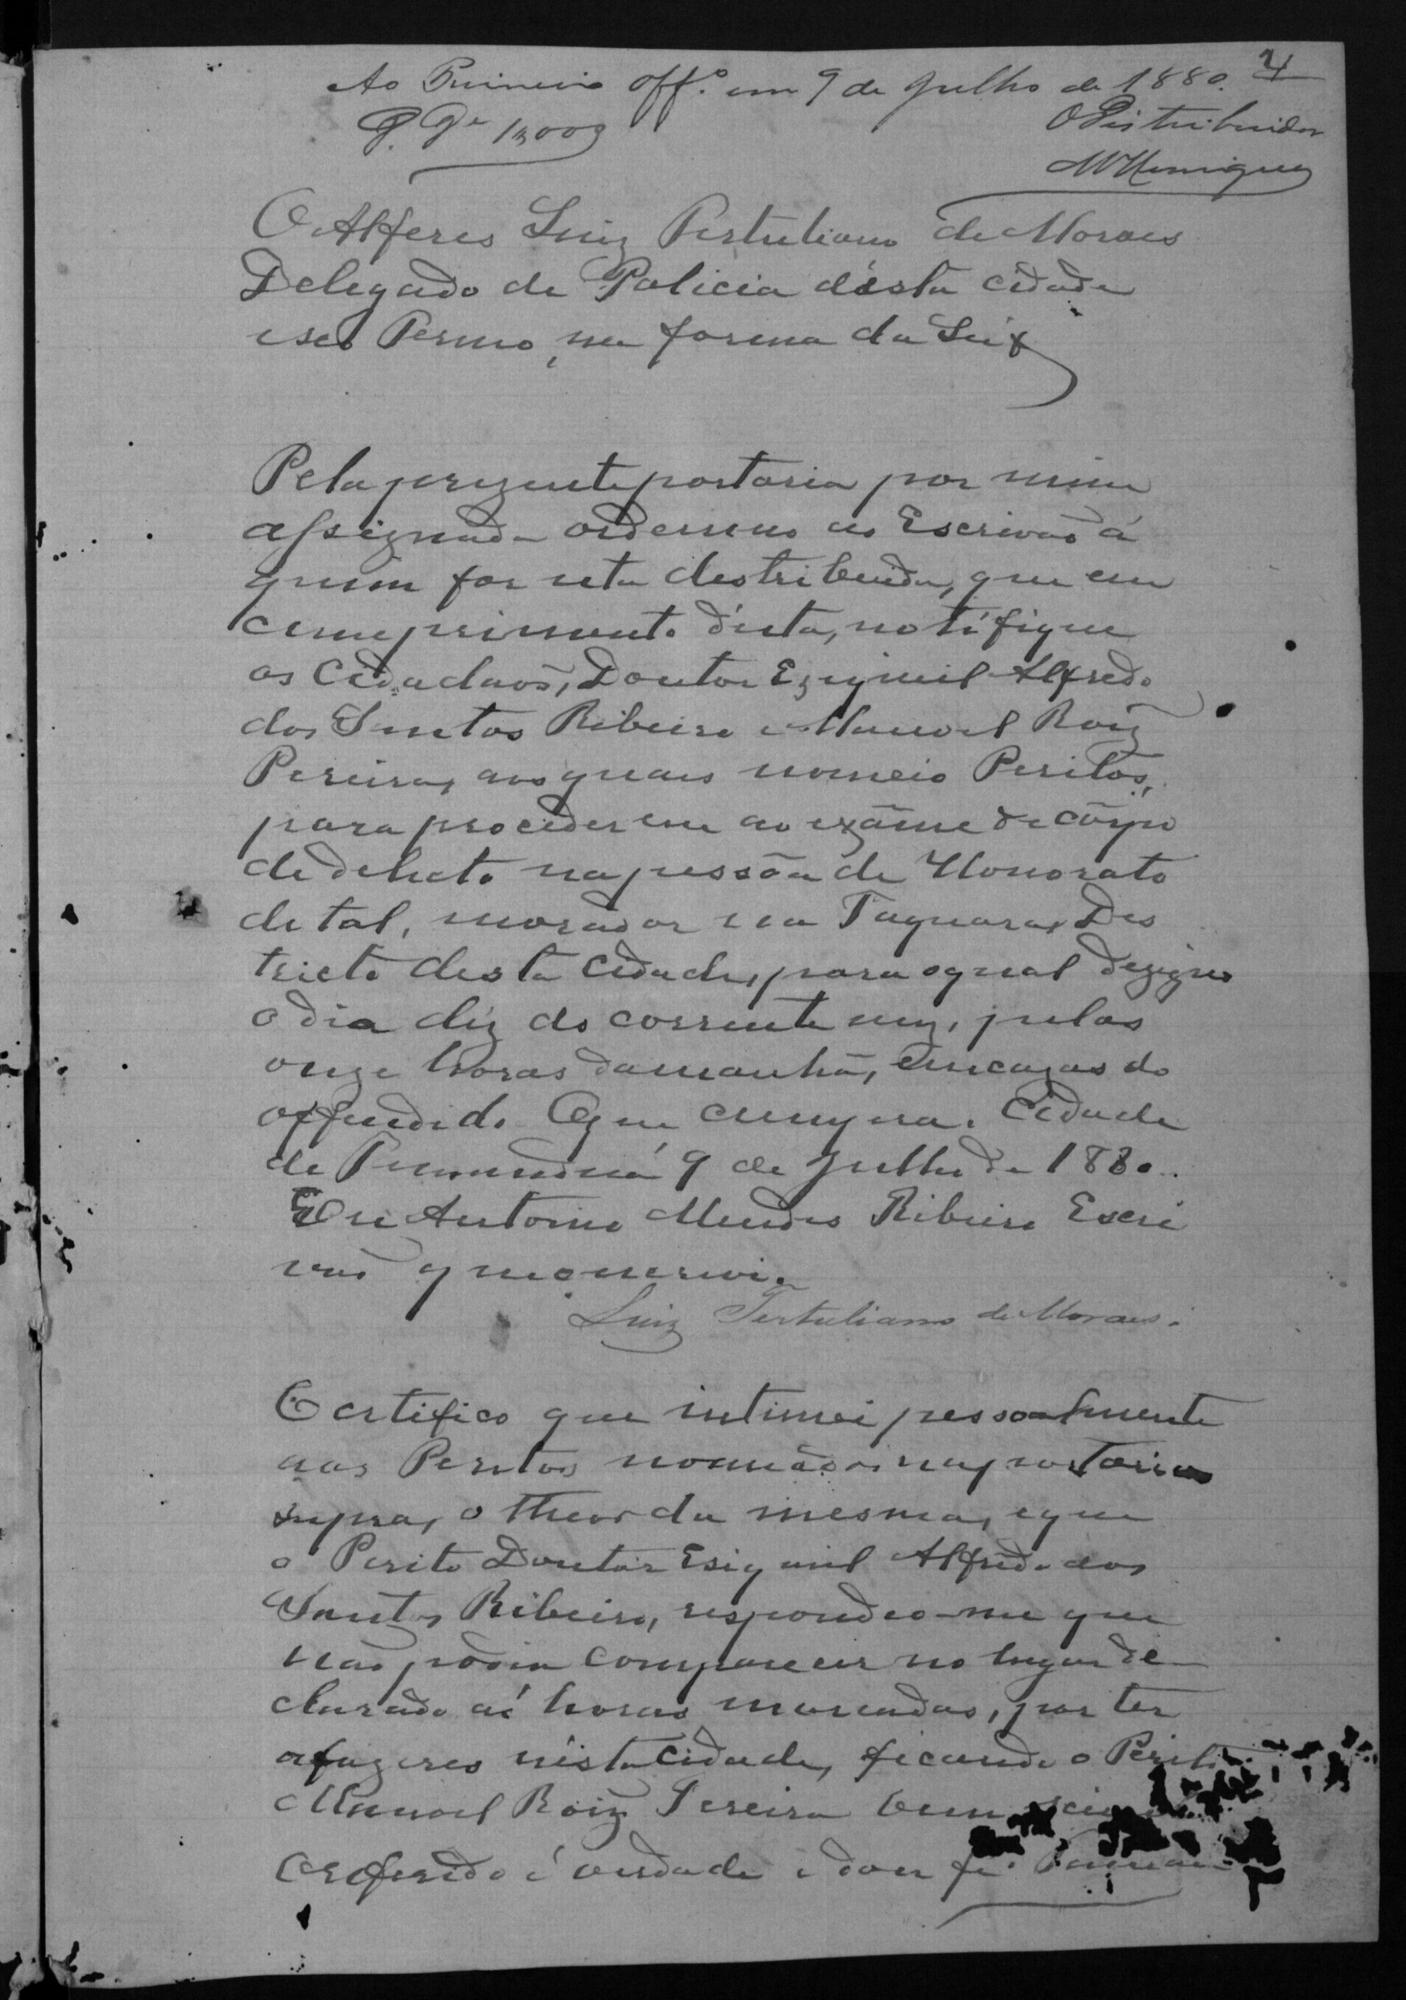 4
Ao Primeiro Off.º em 9 de Julho de 1880.
O Distribuidor
P. Ge 1$000
MHenriques
O Alferes Luiz Tertuliano de Moraes
Delegado de Policia désta cidade
e seo Termo, na forma da Lei &
Pela prezente portaria por mim
assignada ordemno ao Escrivaõ á
quem for esta destribuida, que em
cumprimento d'ésta, notifique
os Cidadaõs, Doutor Eziquiel Alfredo
dos Santos Ribeiro e Manoel Roiz
Pereira, aos quais nomeio Peritos,
para procederem ao ezãme de côrpo
de delicto na pessôa de Honorato
de tal, morador na Taquara, Des
tricto desta Cidade, para o qual dezigno
o dia déz do corrente mez, pelas
onze horas da manhã, em cazas do
offendido O que cumpra. Cidade
de Mamanguá 9 de Julho de 1880.
Eu Antonio Mendes Ribeiro Escri
vaõ que o escrevi.
Luiz Tertuliano de Moraes.
Certifico que intimei pessoalmente
aos Peritos nomeádos na portaria
supra, o theor da mesma, e que
o Perito Doutor Esiquiel Alfrêdo dos
Santos Ribeiro, respondeo-me que
naõ podia comparecer no lugar de
clarado ás horas marcadas, por ter
afazeres nésta Cidade, ficando o Perito
Manoel Roiz Pereira bem
O referido é verdade e dou fé.